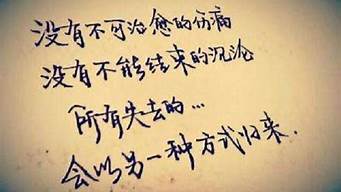 没有不可治愈的伤痛
没有不能结束的沉沦
所有失去的...
会以另一种方式归来.